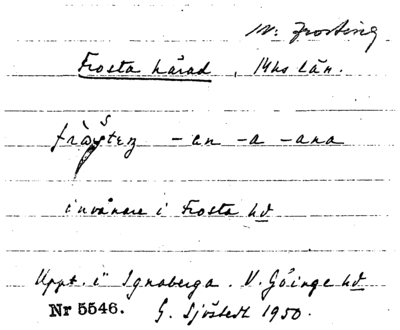 N: Frosting
Frosta härad, Mhs län.
-en -a -ana
invånare i Frosta hd
Uppt. i Ignaberga. V. Göinge hd
Nr 5546. G. Sjöstedt 1930.